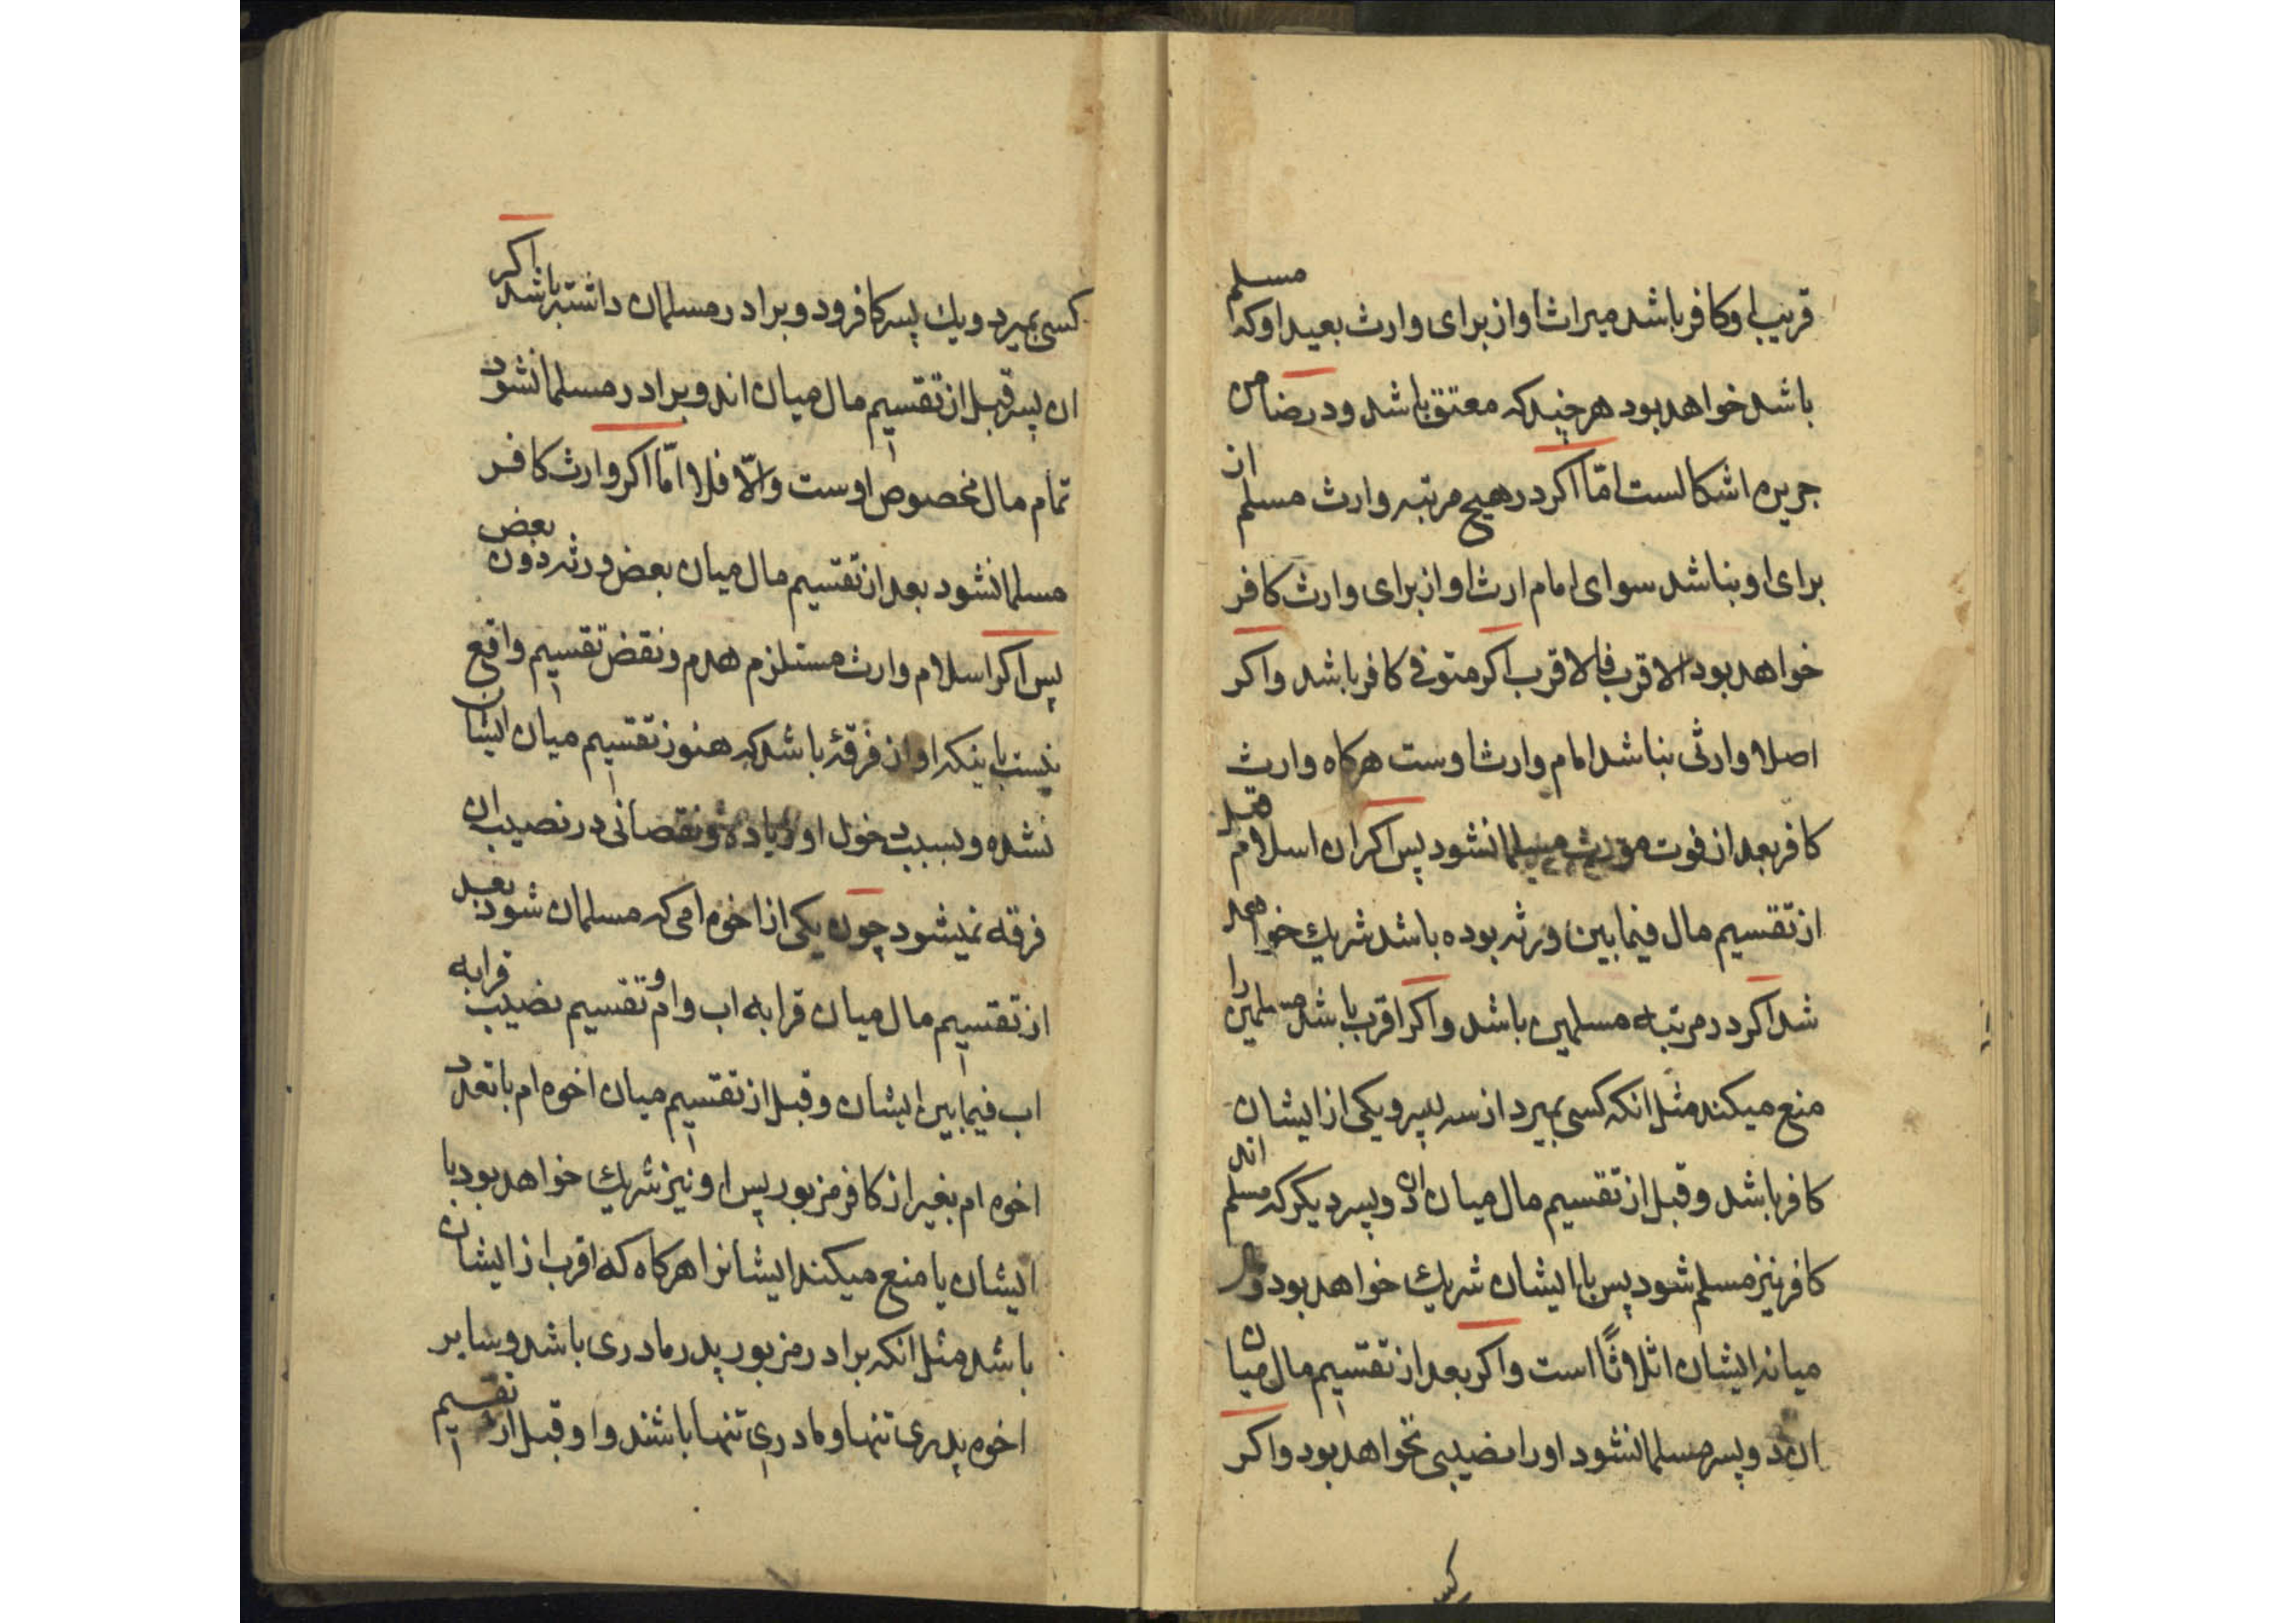 قریب او کافر باشد میراث او از برای وارث بعید او که مسلم
باشد خواهد بود هر چند که معتق باشد و در ضامن
جریره اشکالست امّا اکر در هیچ مرتبه وارث مسلم از
برای او بناشد سوای امام ارث او از برای وارث کافر
خواهد بود الاقرب فالاقرب اکر متوفی کافر باشد و اکر
اصلا وارثی بناشد امام وارث اوست هرکاه وارث
کافر بعد از فوت مورث مسلمان شود پس اکر ان اسلام قبل
از تقسیم مال فیما بین ورثه بوده باشد شریک خواهد
شد اکر در مرتبه مسلمین باشد و اکر اقرب باشد مسلمین را
منع میکند مثل انکه کسی بمیرد از سه پسر و یکی از ایشان
کافر باشد و قبل از تقسیم مال میان ان دو پسر دیکر که مسلم اند
کافر نیز مسلم شود پس با ایشان شریک خواهد بود و
میانه ایشان اثلاثاً است و اکر بعد از تقسیم مال میان
ان دو پسر مسلمان شود او را نصیبی نخواهد بود و اکر
کسی
کسی بمیرد و یک پسر کافر و دو برادر مسلمان داشته باشد اکر
ان پسر قبل از تقسیم مال میان اندو برادر مسلمان شود
تمام مال مخصوص اوست والّا فلا امّا اکر وارث کافر
مسلمان شود بعد از تقسیم مال میان بعض ورثه دون بعض
پس اکر اسلام وارث مستلزم هدم و نقض تقسیم واقع
نیست باینکه او از فرقهٔ باشد که هنوز تقسیم میان ایشان
نشده و بسبب دخول او زیاده و نقصانی در نصیب ان
فرقه نمیشود چون یکی از اخوه امی که مسلمان شود بعد
از تقسیم مال میان قرابه اب وام و تقسیم نصیب قرابه
اب فیما بین ایشان و قبل از تقسیم میان اخوه ام با تعدد
اخوه ام بغیر از کافر مزبور پس او نیز شریک خواهد بود با
ایشان یا منع میکند ایشانرا هرکاه که اقرب از ایشان
باشد مثل انکه برادر مزبور پدر مادری باشد و سایر
اخوه پدری تنها و مادری تنها باشند و او قبل از تقسیم